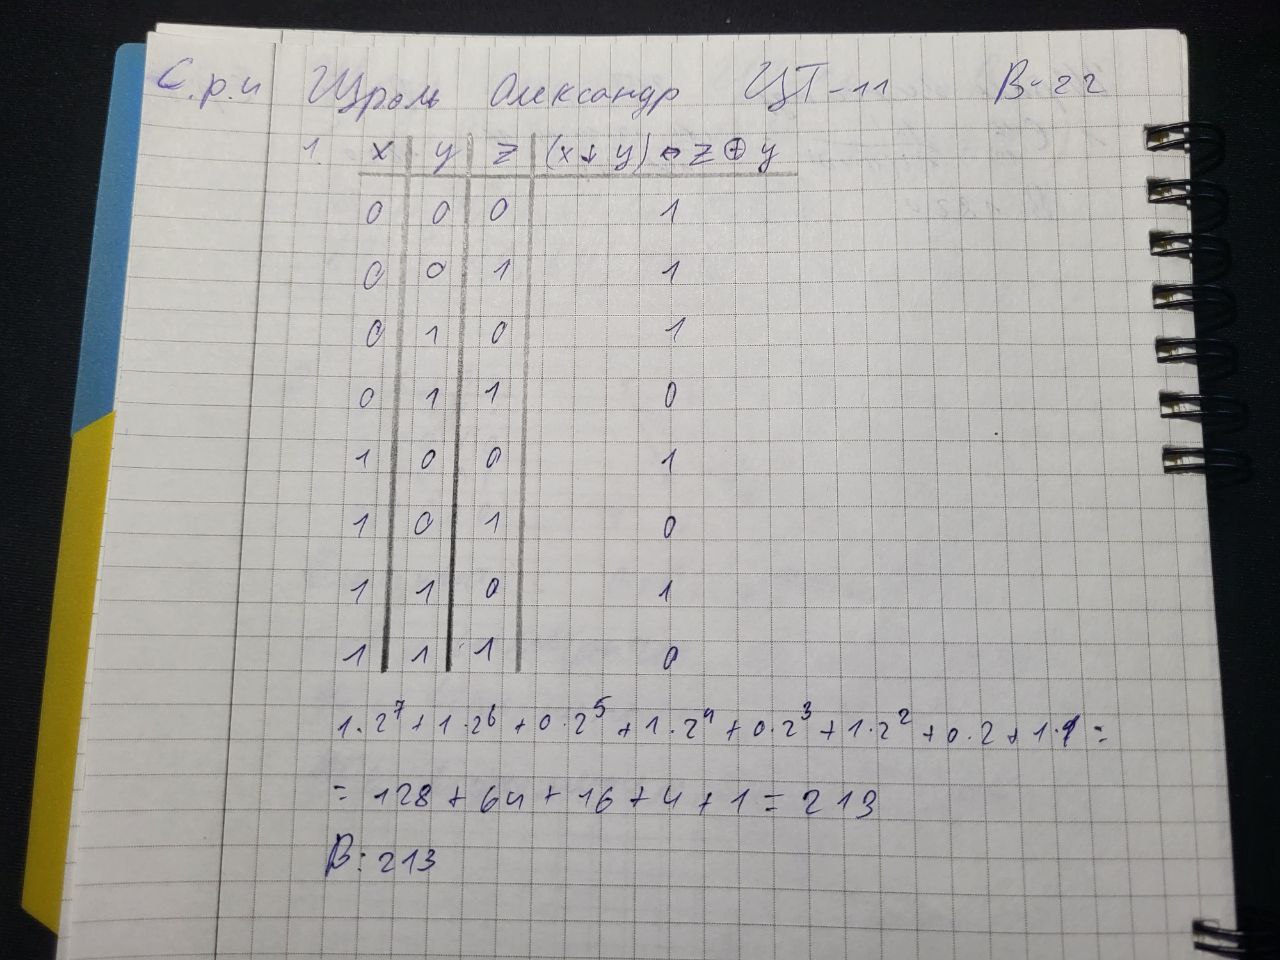 С.р.ч Щроль Олександр ЦТ-11 В-22
1. x y z (x↓y) ↔ z ⊕ y
0 0 0 1
0 0 1 1
0 1 0 1
0 1 1 0
1 0 0 1
1 0 1 0
1 1 0 1
1 1 1 0
1·2⁷+1·2⁶+0·2⁵+1·2⁴+0·2³+1·2²+0·2+1·1=
= 128+64+16+4+1=213
В: 213